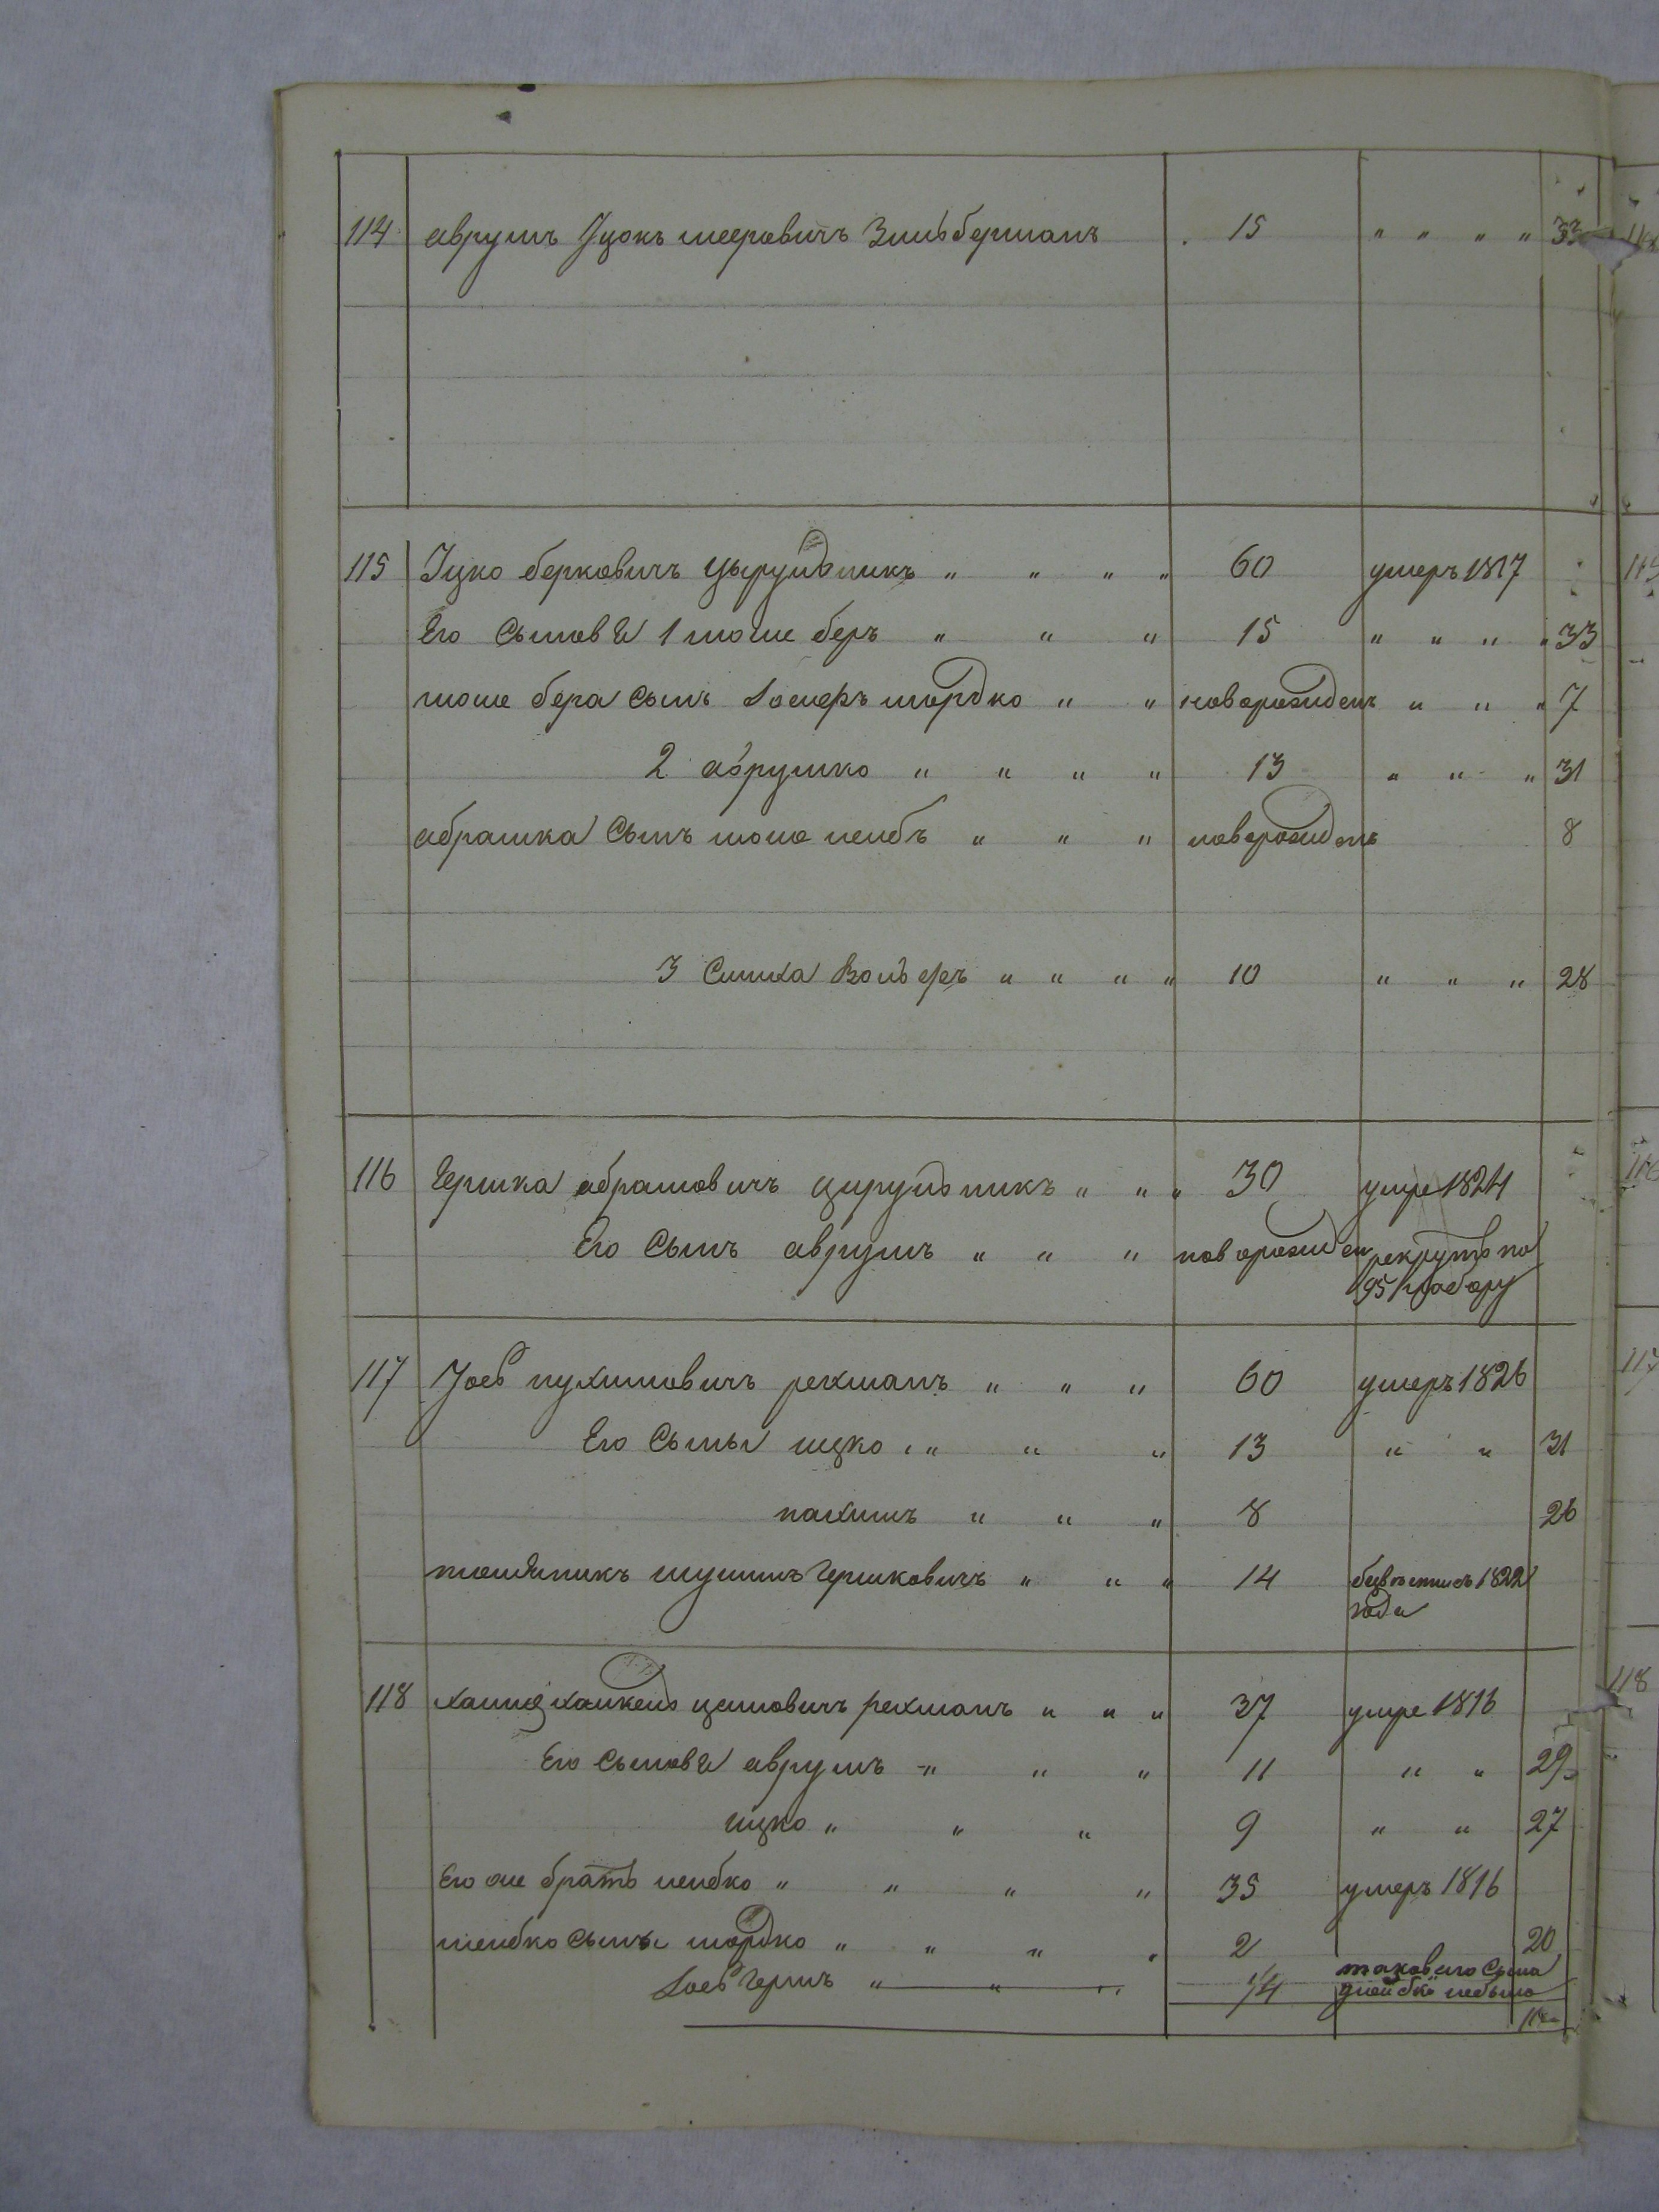 114 аврумъ Іцокъ мееровичъ Зильберманъ . 15 " " " " 33
115 Іцко берковичъ цырульникъ " " " " 60 умеръ 1817
Его Сыновя 1 моше беръ " " " 15 " " " " 33
моше бера сынъ Іосифъ мордко " " новорожденъ " " " 7
2 абрумко " " " " 13 " " " 31
абрамка Сынъ моше лейбъ " " " новорожденъ 8
3 Симха Вольфъ " " " " 10 " " " 28
116 Гершка абрамовичъ цирульникъ " " " 30 умре 1824
Его Сынъ аврумъ " " " новорожден рекрутъ по
95 набору
117 Іось нухимовичъ рехманъ " " " 60 умеръ 1826
Его Сыны ицко " " " 13 " " 31
нахимъ " " " 8 26
племяникъ Гершковичъ " " " 14 1822
года
118 хаимъ цимовичъ рехманъ " " " 37 умре 1816
Его сыновя аврумъ " " " 11 " " 29
ицко " " " 9 " " 27
Его же братъ лейбко " " " " 35 умеръ 1816
лейбко сыны мордко " " " " 2 20
Іось Гершъ " " " 1/4 таковаго сына
у лейбки небыло